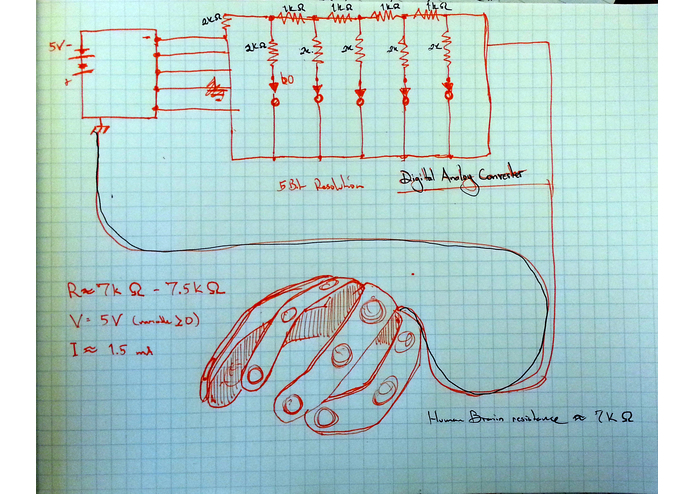 1KΩ 1KΩ 1KΩ 1KΩ
2KΩ
5V -
+
-
2KΩ 2K 2K 2K 2K
b0
5 Bit Resolution Digital Analog Converter
R ≈ 7k Ω - 7.5k Ω
V = 5V (variable ≥ 0)
I ≈ 1.5 mA
Human Brain resistance ≈ 7K Ω